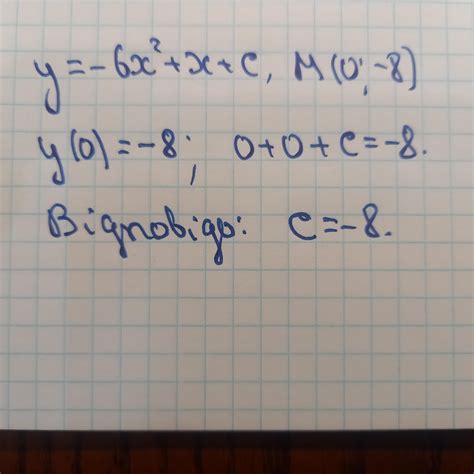 y = -6x² + x + c, M(0; -8)
y(0) = -8; 0 + 0 + c = -8.
Відповідь: c = -8.